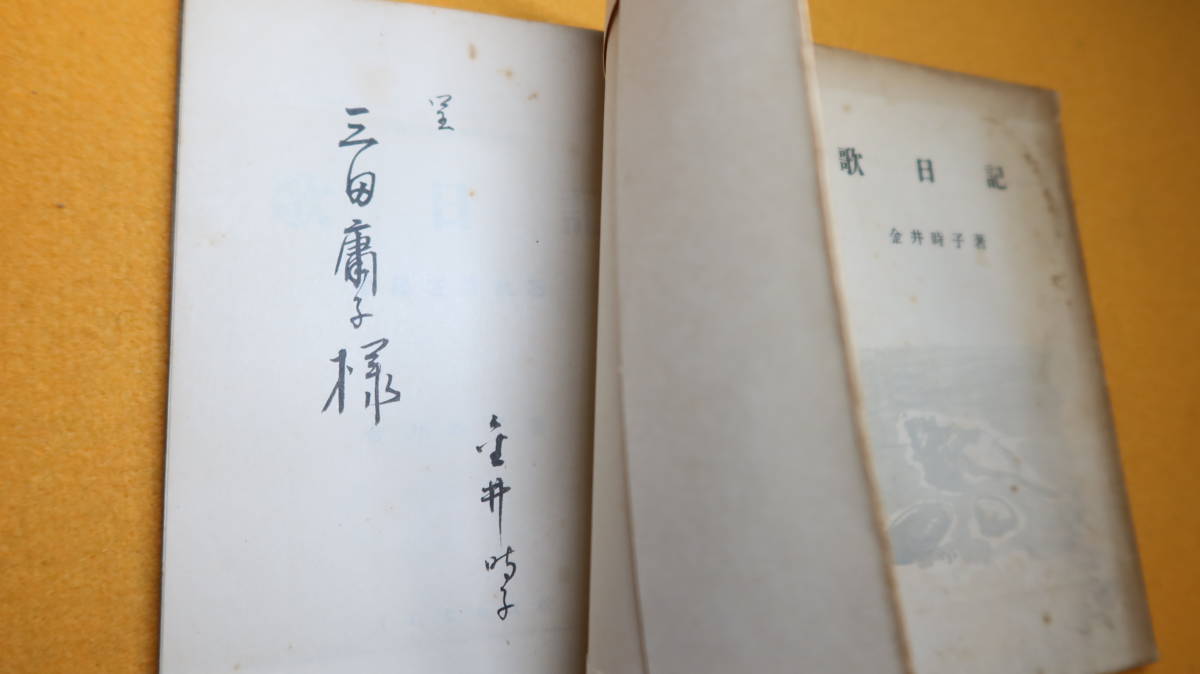 呈
三田庸子様
金井時子
歌日記
金井時子著